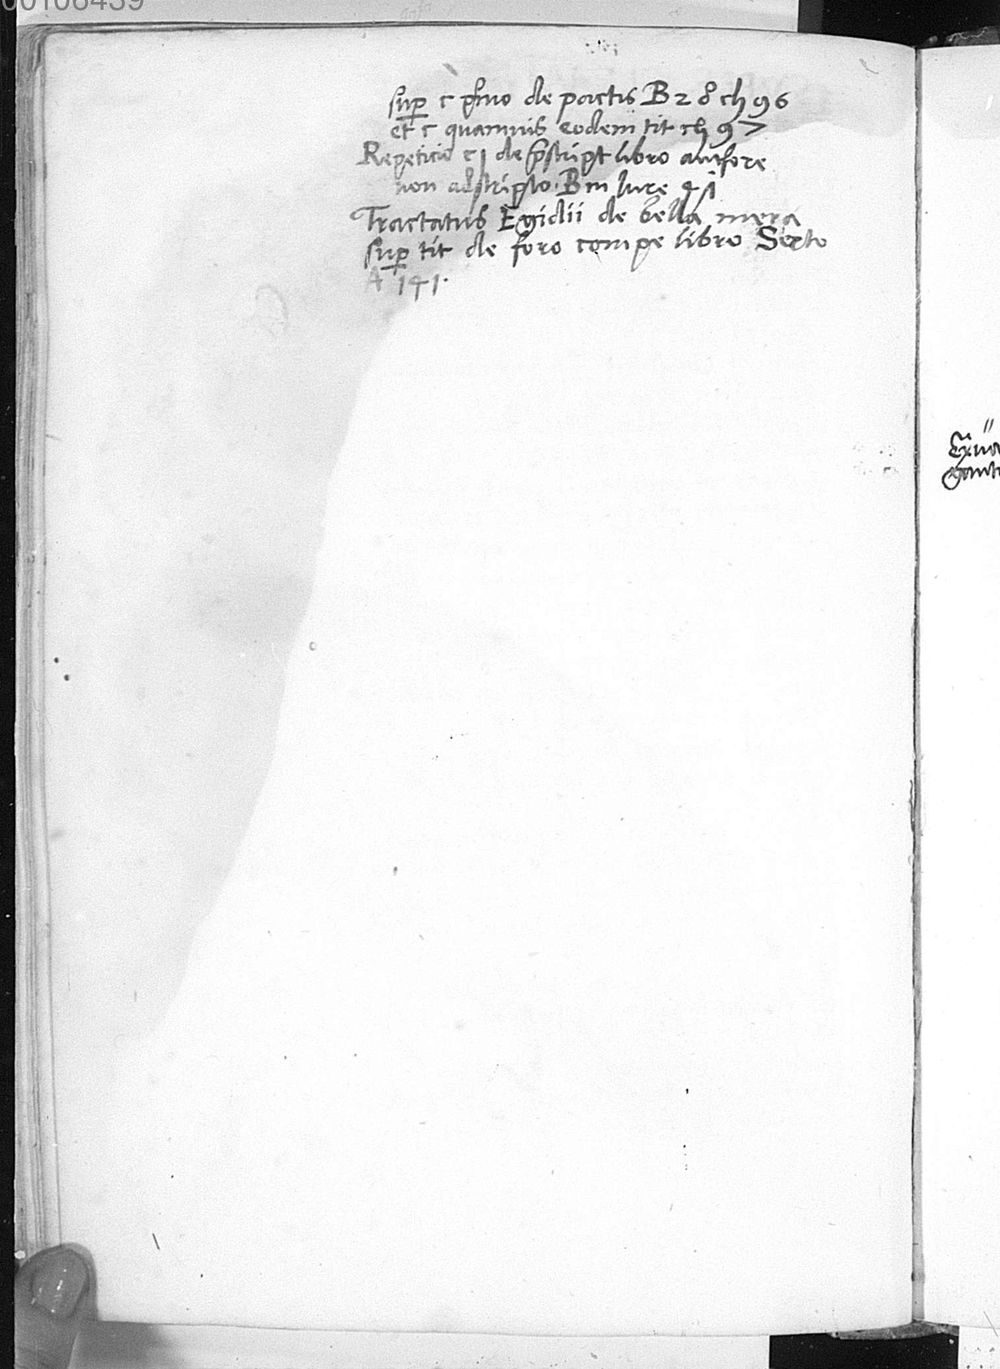 00108439
sup c p̄mo de pactis B 28 ch 96
et c quamuis eodem tit ch 97
Repeticio c j de p̄script libro authore
non adscripto. B in Jure 41
Tractatus Egidii de bella mera
sup tit de foro compe libro Sexto
A 141.